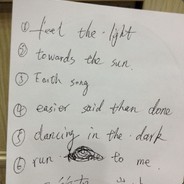 ① feel the light
② towards the sun.
③ Earth song
④ easier said than done
⑤ dancing in the dark
⑥ run to me